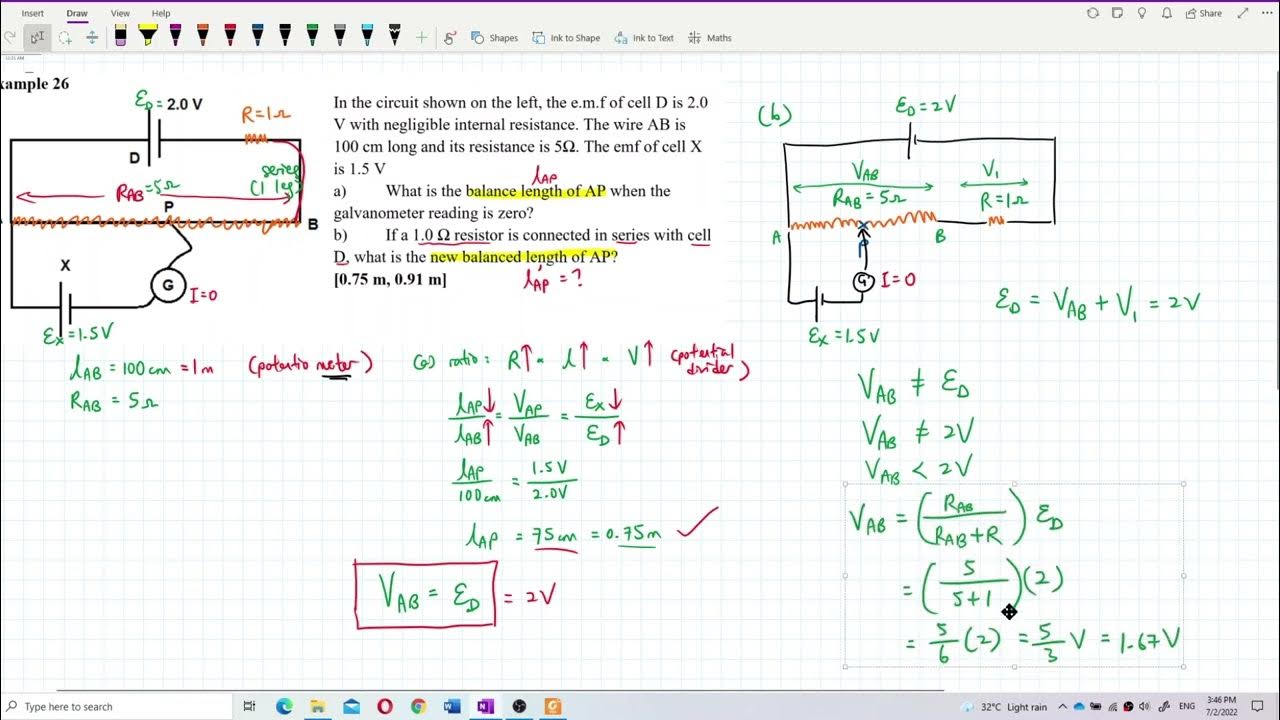 Insert Draw View Help
Share
Shapes Ink to Shape Ink to Text Maths
xample 26
In the circuit shown on the left, the e.m.f of cell D is 2.0
V with negligible internal resistance. The wire AB is
100 cm long and its resistance is 5Ω. The emf of cell X
is 1.5 V
l_AP
a) What is the balance length of AP when the
galvanometer reading is zero?
b) If a 1.0 Ω resistor is connected in series with cell
D, what is the new balanced length of AP?
[0.75 m, 0.91 m]
l'_AP = ?
ε_D = 2.0 V
R = 1Ω
D
series
(1 leg)
R_AB = 5Ω
P
B
X
G
I = 0
ε_X = 1.5V
l_AB = 100 cm = 1m
(potentiometer)
R_AB = 5Ω
(a) ratio: R↑ ∝ l↑ ∝ V↑ (potential divider)
l_AP↓/l_AB↑ = V_AP/V_AB = ε_X↓/ε_D↑
l_AP/100cm = 1.5V/2.0V
l_AP = 75cm = 0.75m ✓
V_AB = ε_D = 2V
(b)
ε_D = 2V
V_AB V_1
R_AB = 5Ω R = 1Ω
A B
P
G I = 0
ε_X = 1.5V
ε_D = V_AB + V_1 = 2V
V_AB ≠ ε_D
V_AB ≠ 2V
V_AB < 2V
V_AB = (R_AB/(R_AB + R)) ε_D
= (5/(5+1)) (2)
= 5/6 (2) = 5/3 V = 1.67V
Type here to search
32°C Light rain
ENG
3:46 PM
7/2/2022